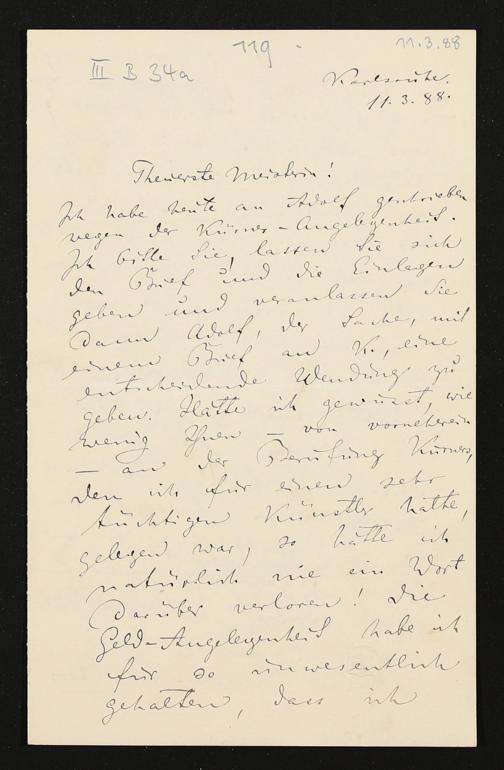 119 -
11.3.88
III B 34a
Karlsruhe.
11.3.88.
Theuerste Meisterin!
Ich habe heute an Adolf geschrieben
wegen der Kürner-Angelegenheit.
Ich bitte Sie, lassen Sie sich
den Brief und die Einlagen
geben und veranlassen Sie
dann Adolf, der Sache, mit
einem Brief an K., eine
entscheidende Wendung zu
geben. Hätte ich gewusst, wie
wenig Ihnen – von vorneherein
– an der Berufung Kürners,
den ich für einen sehr
tüchtigen Künstler halte,
gelegen war, so hätte ich
natürlich nie ein Wort
darüber verloren! Die
Geld-Angelegenheit habe ich
für so unwesentlich
gehalten, dass ich